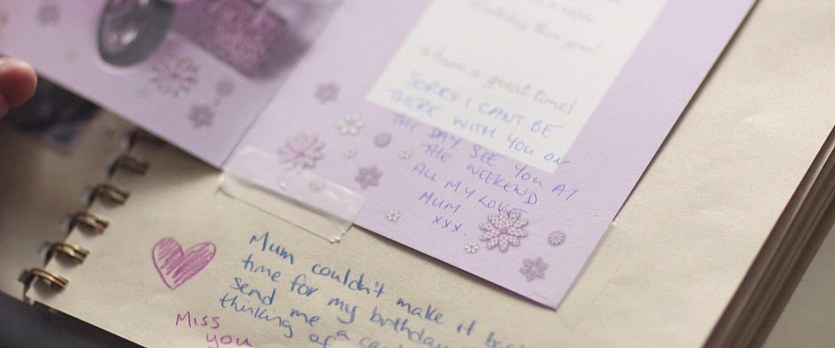 birthday
Have a great time!
SORRY I CAN'T BE
THERE WITH YOU ON
THE DAY. SEE YOU AT
THE WEEKEND
ALL MY LOVE
MUM
xxx.
Mum couldn't make it
time for my birthday
send me a
thinking of
Miss
you